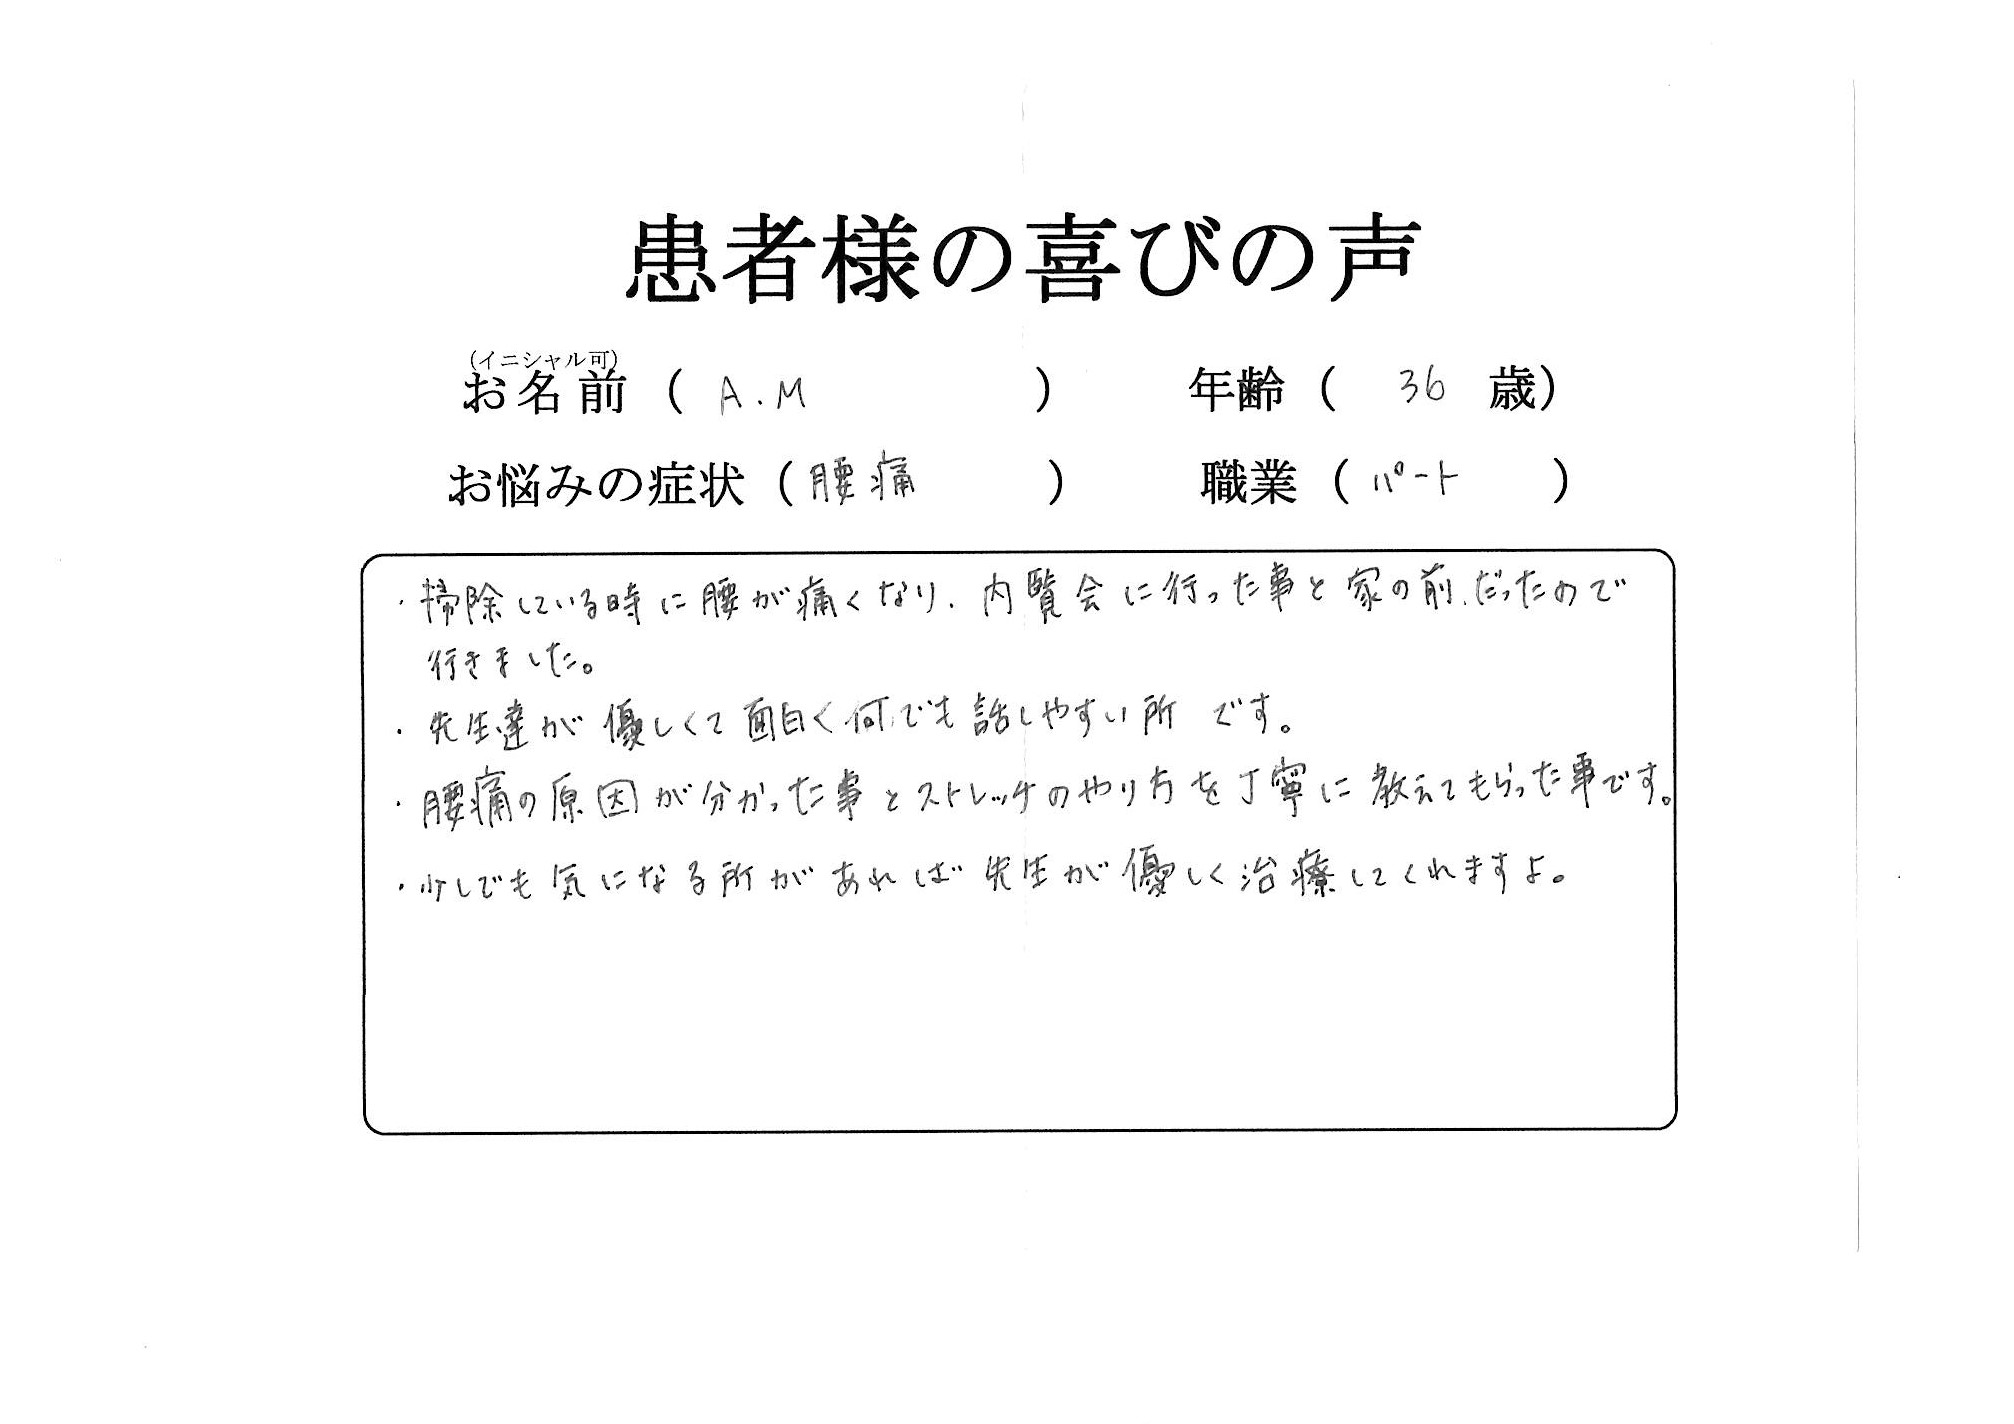 患者様の喜びの声
(イニシャル可)
お名前（ A.M ） 年齢（ 36 歳）
お悩みの症状（腰痛 ） 職業（パート ）
・掃除している時に腰が痛くなり、内覧会に行った事と家の前だったので
行きました。
・先生達が優しくて面白く何でも話しやすい所です。
・腰痛の原因が分かった事とストレッチのやり方を丁寧に教えてもらった事です。
・少しでも気になる所があれば先生が優しく治療してくれますよ。